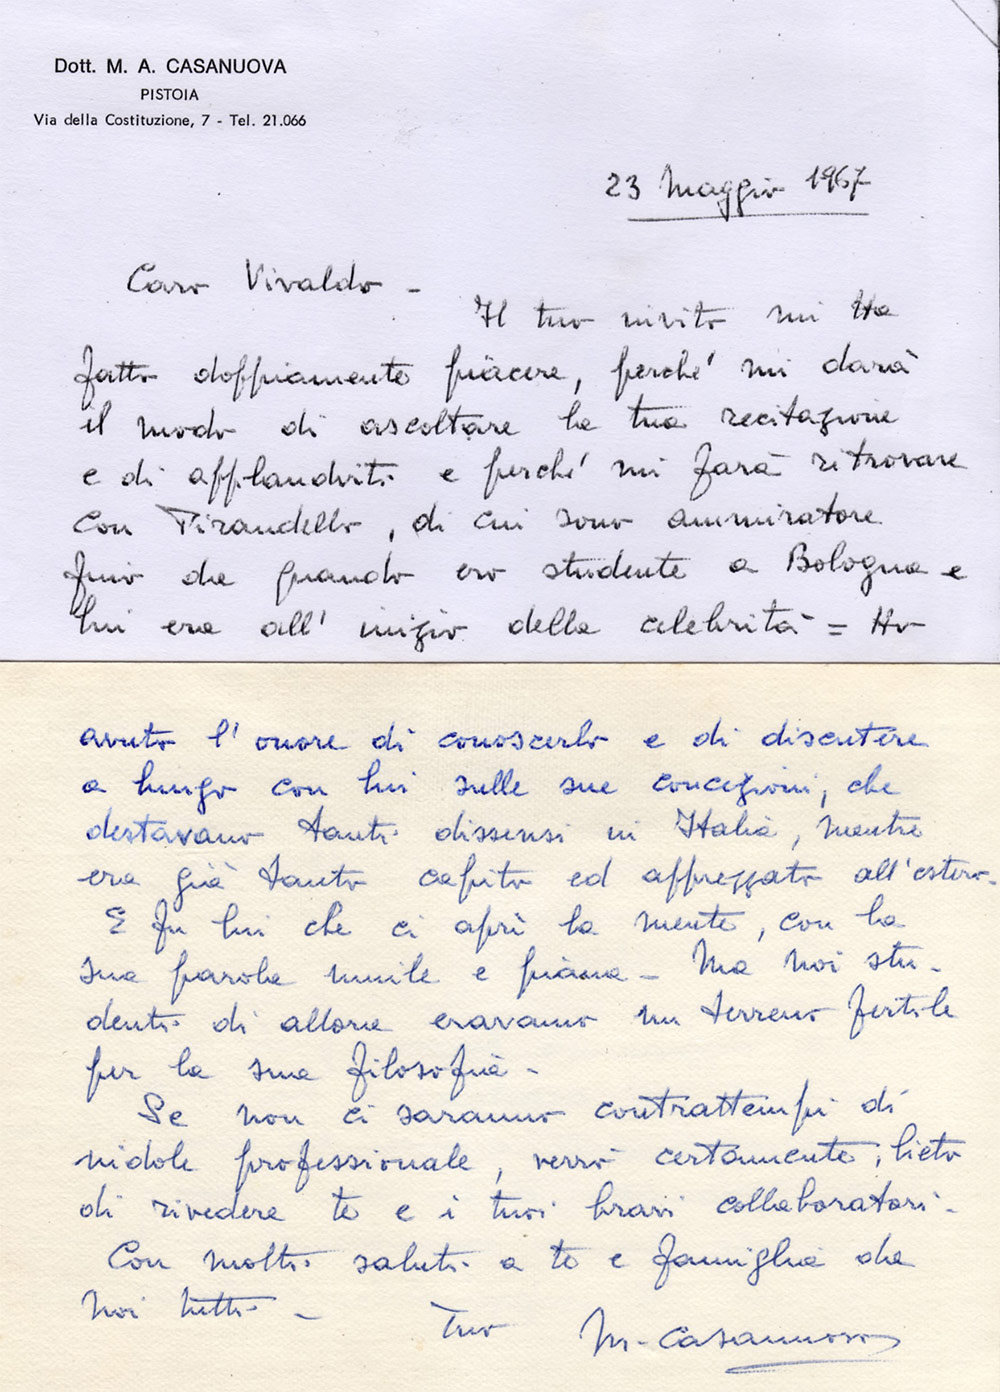 Dott. M. A. CASANUOVA
PISTOIA
Via della Costituzione, 7 - Tel. 21.066
23 Maggio 1967
Caro Vivaldo -
Il tuo invito mi ha
fatto doppiamente piacere, perché mi darà
il modo di ascoltare la tua recitazione
e di applaudirti e perché mi farà ritrovare
con Pirandello, di cui sono ammiratore
fino da quando ero studente a Bologna e
lui era all'inizio della celebrità = Ho
avuto l'onore di conoscerlo e di discutere
a lungo con lui sulle sue concezioni, che
destavano tanti dissensi in Italia, mentre
era già tanto capito ed apprezzato all'estero.
E fu lui che ci aprì la mente, con la
sua parola umile e piana - Ma noi stu-
denti di allora eravamo un terreno fertile
per la sua filosofia -
Se non ci saranno contrattempi di
indole professionale, verrò certamente, lieto
di rivedere te e i tuoi bravi collaboratori -
Con molti saluti a te e famiglia da
noi tutti -
Tuo M. Casanuova